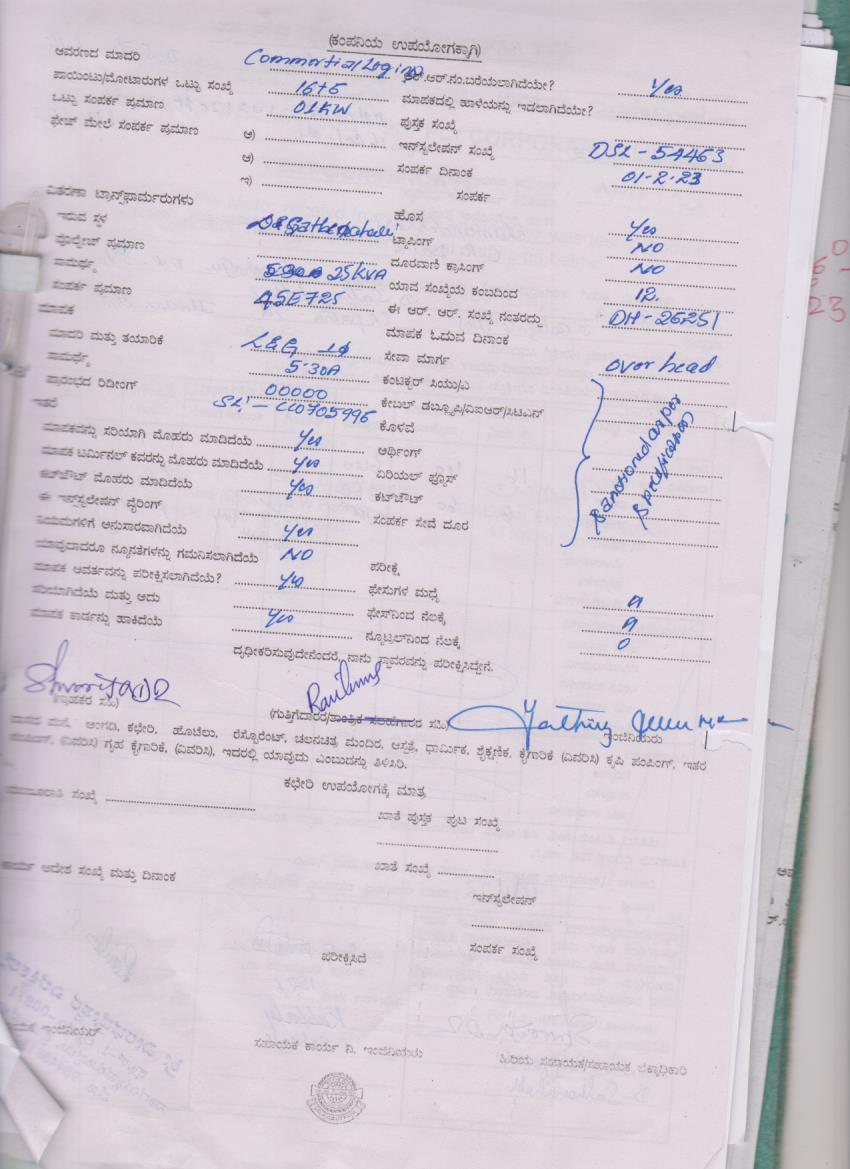 (ಕಂಪನಿಯ ಉಪಯೋಗಕ್ಕಾಗಿ)
ಆವರಣದ ಮಾದರಿ Commertial ಆರ್.ಆರ್.ನಂ.ಬರೆಯಲಾಗಿದೆಯೇ? Yes
ಪಾಯಿಂಟು/ಮೋಟಾರುಗಳ ಒಟ್ಟು ಸಂಖ್ಯೆ ಮಾಪಕದಲ್ಲಿ ಹಾಳೆಯನ್ನು ಇಡಲಾಗಿದೆಯೇ?
ಒಟ್ಟು ಸಂಪರ್ಕ ಪ್ರಮಾಣ 01KW ಪುಸ್ತಕ ಸಂಖ್ಯೆ
ಫೇಜ್ ಮೇಲೆ ಸಂಪರ್ಕ ಪ್ರಮಾಣ ಅ) ಇನ್‌ಸ್ಟಲೇಷನ್ ಸಂಖ್ಯೆ DSL-54463
ಆ) ಸಂಪರ್ಕ ದಿನಾಂಕ 01-2-23
ಇ) ಸಂಪರ್ಕ
ವಿತರಣಾ ಟ್ರಾನ್ಸ್‌ಫಾರ್ಮರುಗಳು
ಇರುವ ಸ್ಥಳ ಹೊಸ Yes
ವೋಲ್ಟೇಜ್ ಪ್ರಮಾಣ ಟ್ಯಾಪಿಂಗ್ NO
ಸಾಮರ್ಥ್ಯ 25KVA ದೂರವಾಣಿ ಕ್ರಾಸಿಂಗ್ NO
ಸಂಪರ್ಕ ಪ್ರಮಾಣ ಯಾವ ಸಂಖ್ಯೆಯ ಕಂಬದಿಂದ 12.
ಮಾಪಕ ಈ ಆರ್. ಆರ್. ಸಂಖ್ಯೆ ನಂತರದ್ದು DH-26251
ಮಾಪಕ ಓದುವ ದಿನಾಂಕ
ಮಾದರಿ ಮತ್ತು ತಯಾರಿಕೆ L&G 1ϕ ಸೇವಾ ಮಾರ್ಗ over head
ಸಾಮರ್ಥ್ಯ 5-30A ಕಂಟಕ್ಟರ್ ಸಿಯು/ಎ
ಪ್ರಾರಂಭದ ರಿಡೀಂಗ್ 00000 ಕೇಬಲ್ ಡಬ್ಲ್ಯೂಪಿ/ವಿಐಆರ್/ಸಿಟಿಎನ್
ಇತರೆ ಕೊಳವೆ
ಮಾಪಕವನ್ನು ಸರಿಯಾಗಿ ಮೊಹರು ಮಾಡಿದೆಯೆ Yes ಅರ್ಥಿಂಗ್ Sanctioned as per
ಮಾಪಕ ಟರ್ಮಿನಲ್ ಕವರನ್ನು ಮೊಹರು ಮಾಡಿದೆಯೆ Yes ಏರಿಯಲ್ ಫ್ಯೂಸ್ Specification
ಕಟ್‌ಔಟ್ ಮೊಹರು ಮಾಡಿದೆಯೆ Yes ಕಟ್‌ಔಟ್
ಈ ಇನ್‌ಸ್ಟಲೇಷನ್ ವೈರಿಂಗ್ ಸಂಪರ್ಕ ಸೇವೆ ದೂರ
ನಿಯಮಗಳಿಗೆ ಅನುಸಾರವಾಗಿದೆಯೆ Yes
ಯಾವುದಾದರೂ ನ್ಯೂನತೆಗಳನ್ನು ಗಮನಿಸಲಾಗಿದೆಯೆ NO ಪರೀಕ್ಷೆ
ಮಾಪಕ ಆವರ್ತವನ್ನು ಪರೀಕ್ಷಿಸಲಾಗಿದೆಯೆ? Yes ಫೇಸುಗಳ ಮಧ್ಯೆ
ಸರಿಯಾಗಿದೆಯೆ ಮತ್ತು ಅದು ಫೇಸ್‌ನಿಂದ ನೆಲಕ್ಕೆ
ಮಾಪಕ ಕಾರ್ಡನ್ನು ಹಾಕಿದೆಯೆ Yes ನ್ಯೂಟ್ರಲ್‌ನಿಂದ ನೆಲಕ್ಕೆ 0
ದೃಢೀಕರಿಸುವುದೇನೆಂದರೆ, ನಾನು ಸ್ಥಾವರವನ್ನು ಪರೀಕ್ಷಿಸಿದ್ದೇನೆ.
(ಗ್ರಾಹಕರ ಸಹಿ) (ಗುತ್ತಿಗೆದಾರರ/ತಾಂತ್ರಿಕ ಸಲಹೆಗಾರರ ಸಹಿ) ಇಂಜಿನಿಯರು
ವಾಸದ ಮನೆ, ಅಂಗಡಿ, ಕಛೇರಿ, ಹೊಟೆಲು, ರೆಸ್ಟೊರೆಂಟ್, ಚಲನಚಿತ್ರ ಮಂದಿರ, ಆಸ್ಪತ್ರೆ, ಧಾರ್ಮಿಕ, ಶೈಕ್ಷಣಿಕ, ಕೈಗಾರಿಕೆ (ಏವರಿಸಿ) ಕೃಷಿ ಪಂಪಿಂಗ್, ಇತರ
ಪಂಪಿಂಗ್, (ಏವರಿಸಿ) ಗೃಹ ಕೈಗಾರಿಕೆ, (ಏವರಿಸಿ), ಇದರಲ್ಲಿ ಯಾವುದು ಎಂಬುದನ್ನು ತಿಳಿಸಿರಿ.
ಕಛೇರಿ ಉಪಯೋಗಕ್ಕೆ ಮಾತ್ರ
ಮಂಜೂರಾತಿ ಸಂಖ್ಯೆ ಖಾತೆ ಪುಸ್ತಕ ಪುಟ ಸಂಖ್ಯೆ
ಕಾರ್ಯ ಆದೇಶ ಸಂಖ್ಯೆ ಮತ್ತು ದಿನಾಂಕ ಖಾತೆ ಸಂಖ್ಯೆ
ಇನ್‌ಸ್ಟಲೇಷನ್
ಸಂಪರ್ಕ ಸಂಖ್ಯೆ
ಪರೀಕ್ಷಿಸಿದೆ
ಇಂಜಿನಿಯರ್ ಸಹಾಯಕ ಕಾರ್ಯ ನಿ. ಇಂಜಿನಿಯರು ಹಿರಿಯ ಸಹಾಯಕ/ಸಹಾಯಕ ಲೆಕ್ಕಾಧಿಕಾರಿ